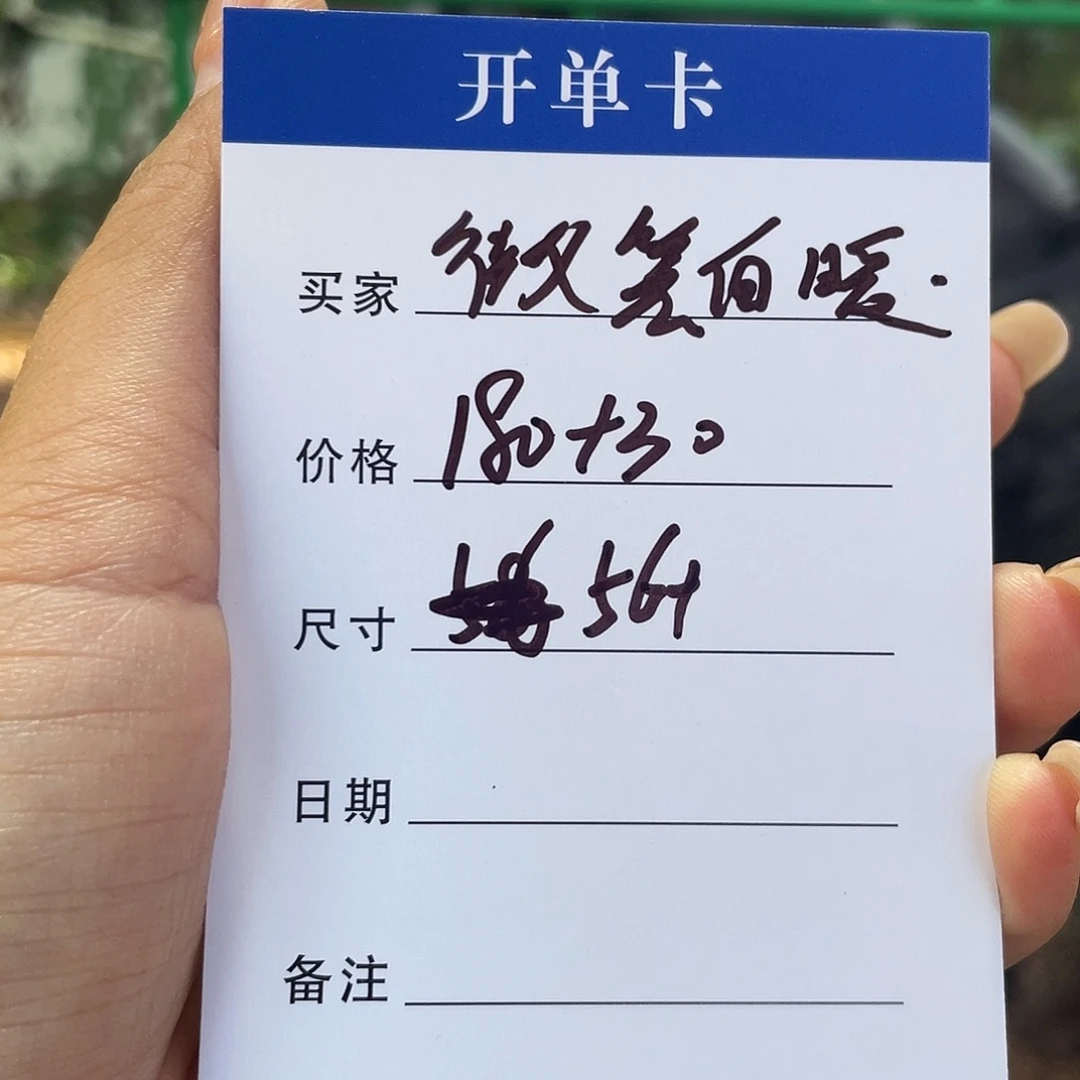 开单卡
买家 微笑向暖.
价格 180+30
尺寸 564
日期
备注